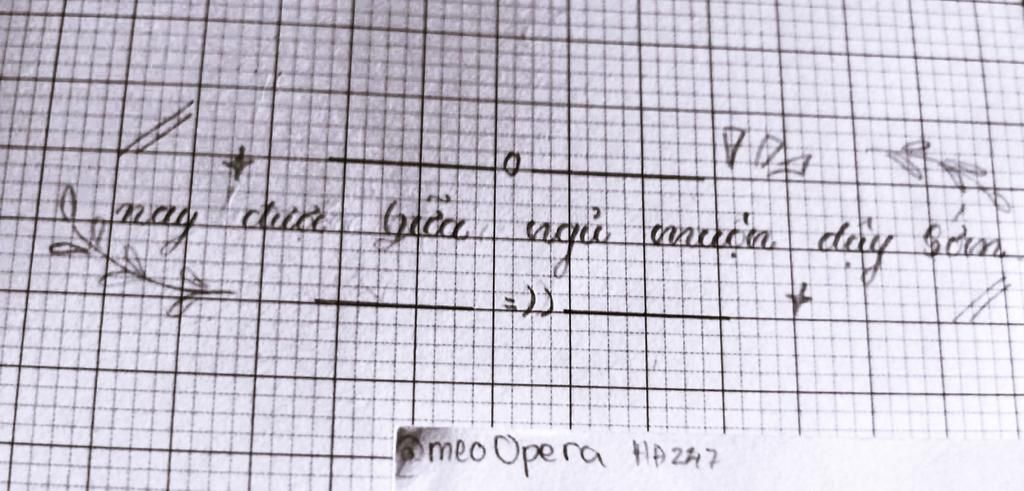 nay đua giữa ngủ muộn dậy sớm
=))
@meoOpera HD247